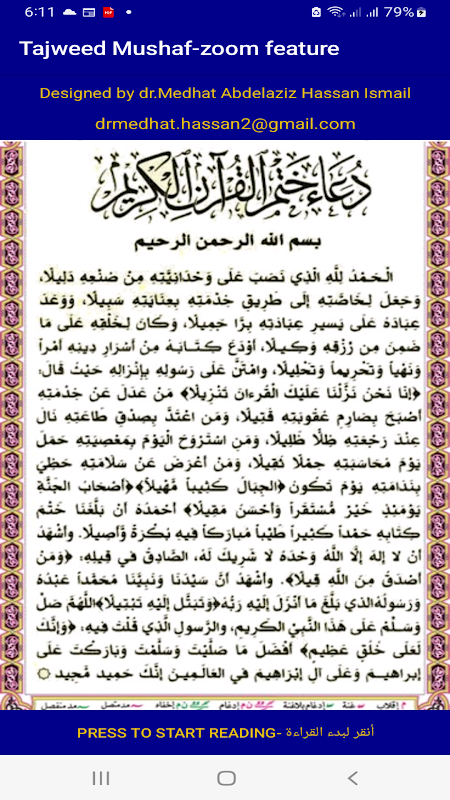 6:11
79%
Tajweed Mushaf-zoom feature
Designed by dr.Medhat Abdelaziz Hassan Ismail
drmedhat.hassan2@gmail.com
دُعَاءُ خَتْمِ الْقُرْآنِ الْكَرِيْمِ
بسم الله الرحمن الرحيم
الْحَمْدُ لِلَّهِ الَّذِي نَصَبَ عَلَى وَحْدَانِيَّتِهِ مِنْ صَنْعِهِ دَلِيلًا،
وَجَعَلَ لِخَاصَّتِهِ إِلَى طَرِيقِ خِدْمَتِهِ بِعِنَايَتِهِ سَبِيلًا، وَوَعَدَ
عِبَادَهُ عَلَى يَسِيرِ عِبَادَتِهِ بِرًّا جَمِيلًا، وَكَانَ لِخَلْقِهِ عَلَى مَا
ضَمِنَ مِنْ رِزْقِهِ وَكِيلًا، أَوْدَعَ كِتَابَهُ مِنْ أَسْرَارِ دِينِهِ أَمْراً
وَنَهْياً وَتَحْرِيماً وَتَحْلِيلًا، وَامْتَنَّ عَلَى رَسُولِهِ بِإِنْزَالِهِ حَيْثُ قَالَ:
﴿إِنَّا نَحْنُ نَزَّلْنَا عَلَيْكَ الْقُرْءَانَ تَنْزِيلًا﴾ مَنْ عَدَلَ عَنْ خِدْمَتِهِ
أَصْبَحَ بِصَارِمِ عُقُوبَتِهِ قَتِيلًا، وَمَنِ اعْتَدَّ بِصِدْقِ طَاعَتِهِ نَالَ
عِنْدَ رَجْعَتِهِ ظِلًّا ظَلِيلًا، وَمَنِ اسْتَرْوَحَ الْيَوْمَ بِمَعْصِيَتِهِ حَمَلَ
يَوْمَ مُحَاسَبَتِهِ حِمْلًا ثَقِيلًا، وَمَنْ أَعْرَضَ عَنْ سَلَامَتِهِ حَظِيَ
بِنَدَامَتِهِ يَوْمَ تَكُونُ ﴿الْجِبَالُ كَثِيباً مَّهِيلاً﴾﴿أَصْحَابُ الْجَنَّةِ
يَوْمَئِذٍ خَيْرٌ مُّسْتَقَرّاً وَأَحْسَنُ مَقِيلًا﴾ أَحْمَدُهُ أَنْ بَلَّغَنَا خَتْمَ
كِتَابِهِ حَمْداً كَثِيراً طَيِّباً مُبَارَكاً فِيهِ بُكْرَةً وَأَصِيلًا. وَأَشْهَدُ
أَنْ لَا إِلَهَ إِلَّا اللَّهُ وَحْدَهُ لَا شَرِيكَ لَهُ، الصَّادِقُ فِي قِيلِهِ: ﴿وَمَنْ
أَصْدَقُ مِنَ اللَّهِ قِيلًا﴾. وَأَشْهَدُ أَنَّ سَيِّدَنَا وَنَبِيَّنَا مُحَمَّداً عَبْدُهُ
وَرَسُولُهُ الَّذِي بَلَّغَ مَا أَنْزَلَ إِلَيْهِ رَبُّهُ ﴿وَتَبَتَّلْ إِلَيْهِ تَبْتِيلًا﴾ اللَّهُمَّ صَلِّ
وَسَلِّمْ عَلَى هَذَا النَّبِيِّ الْكَرِيمِ، وَالرَّسُولِ الَّذِي قُلْتَ فِيهِ: ﴿وَإِنَّكَ
لَعَلَى خُلُقٍ عَظِيمٍ﴾ أَفْضَلَ مَا صَلَّيْتَ وَسَلَّمْتَ وَبَارَكْتَ عَلَى
إِبْرَاهِيمَ وَعَلَى آلِ إِبْرَاهِيمَ فِي الْعَالَمِينَ إِنَّكَ حَمِيدٌ مَجِيدٌ
م إقلاب غنة إدغام بلاغنة ن م إدغام ن م إخفاء مد متصل مد منفصل
PRESS TO START READING- أنقر لبدء القراءة